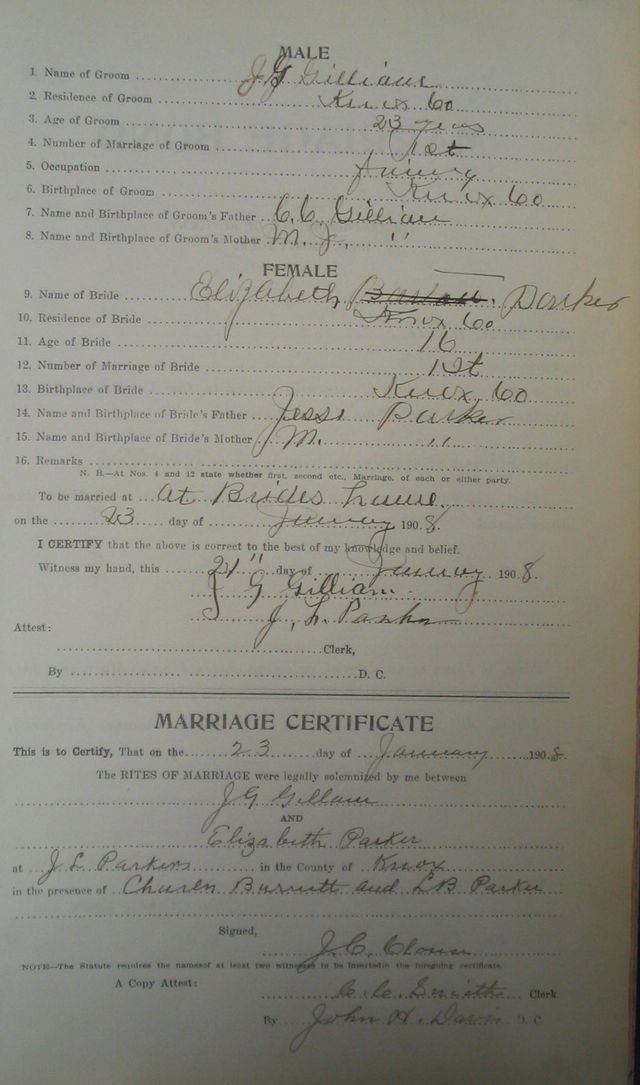 MALE
1. Name of Groom J G Gilliam
2. Residence of Groom Knox Co
3. Age of Groom 23 years
4. Number of Marriage of Groom 1st
5. Occupation
6. Birthplace of Groom Knox Co
7. Name and Birthplace of Groom's Father C. C. Gilliam
8. Name and Birthplace of Groom's Mother M. J. "
FEMALE
9. Name of Bride Elizabeth Parker
10. Residence of Bride Knox Co
11. Age of Bride 16
12. Number of Marriage of Bride 1st
13. Birthplace of Bride Knox Co
14. Name and Birthplace of Bride's Father Jess Parker
15. Name and Birthplace of Bride's Mother M. "
16. Remarks
N. B.—At Nos. 4 and 12 state whether first, second etc., Marriage, of each or either party.
To be married at at Brides home.
on the 23 day of January 1908.
I CERTIFY that the above is correct to the best of my knowledge and belief.
Witness my hand, this 21" day of January 1908.
J G Gilliam
J. L. Parker
Attest:
Clerk,
By D. C.
MARRIAGE CERTIFICATE
This is to Certify, That on the 23 day of January 1908.
The RITES OF MARRIAGE were legally solemnized by me between
J G Gillam
AND
Elizabeth Parker
at J L Parkers in the County of Knox
in the presence of Burnett and L B Parker
Signed,
J. C.
NOTE—The Statute requires the names of at least two witnesses to be inserted in the foregoing certificate.
A Copy Attest: C. C. Smith Clerk
By John H. Davis D C